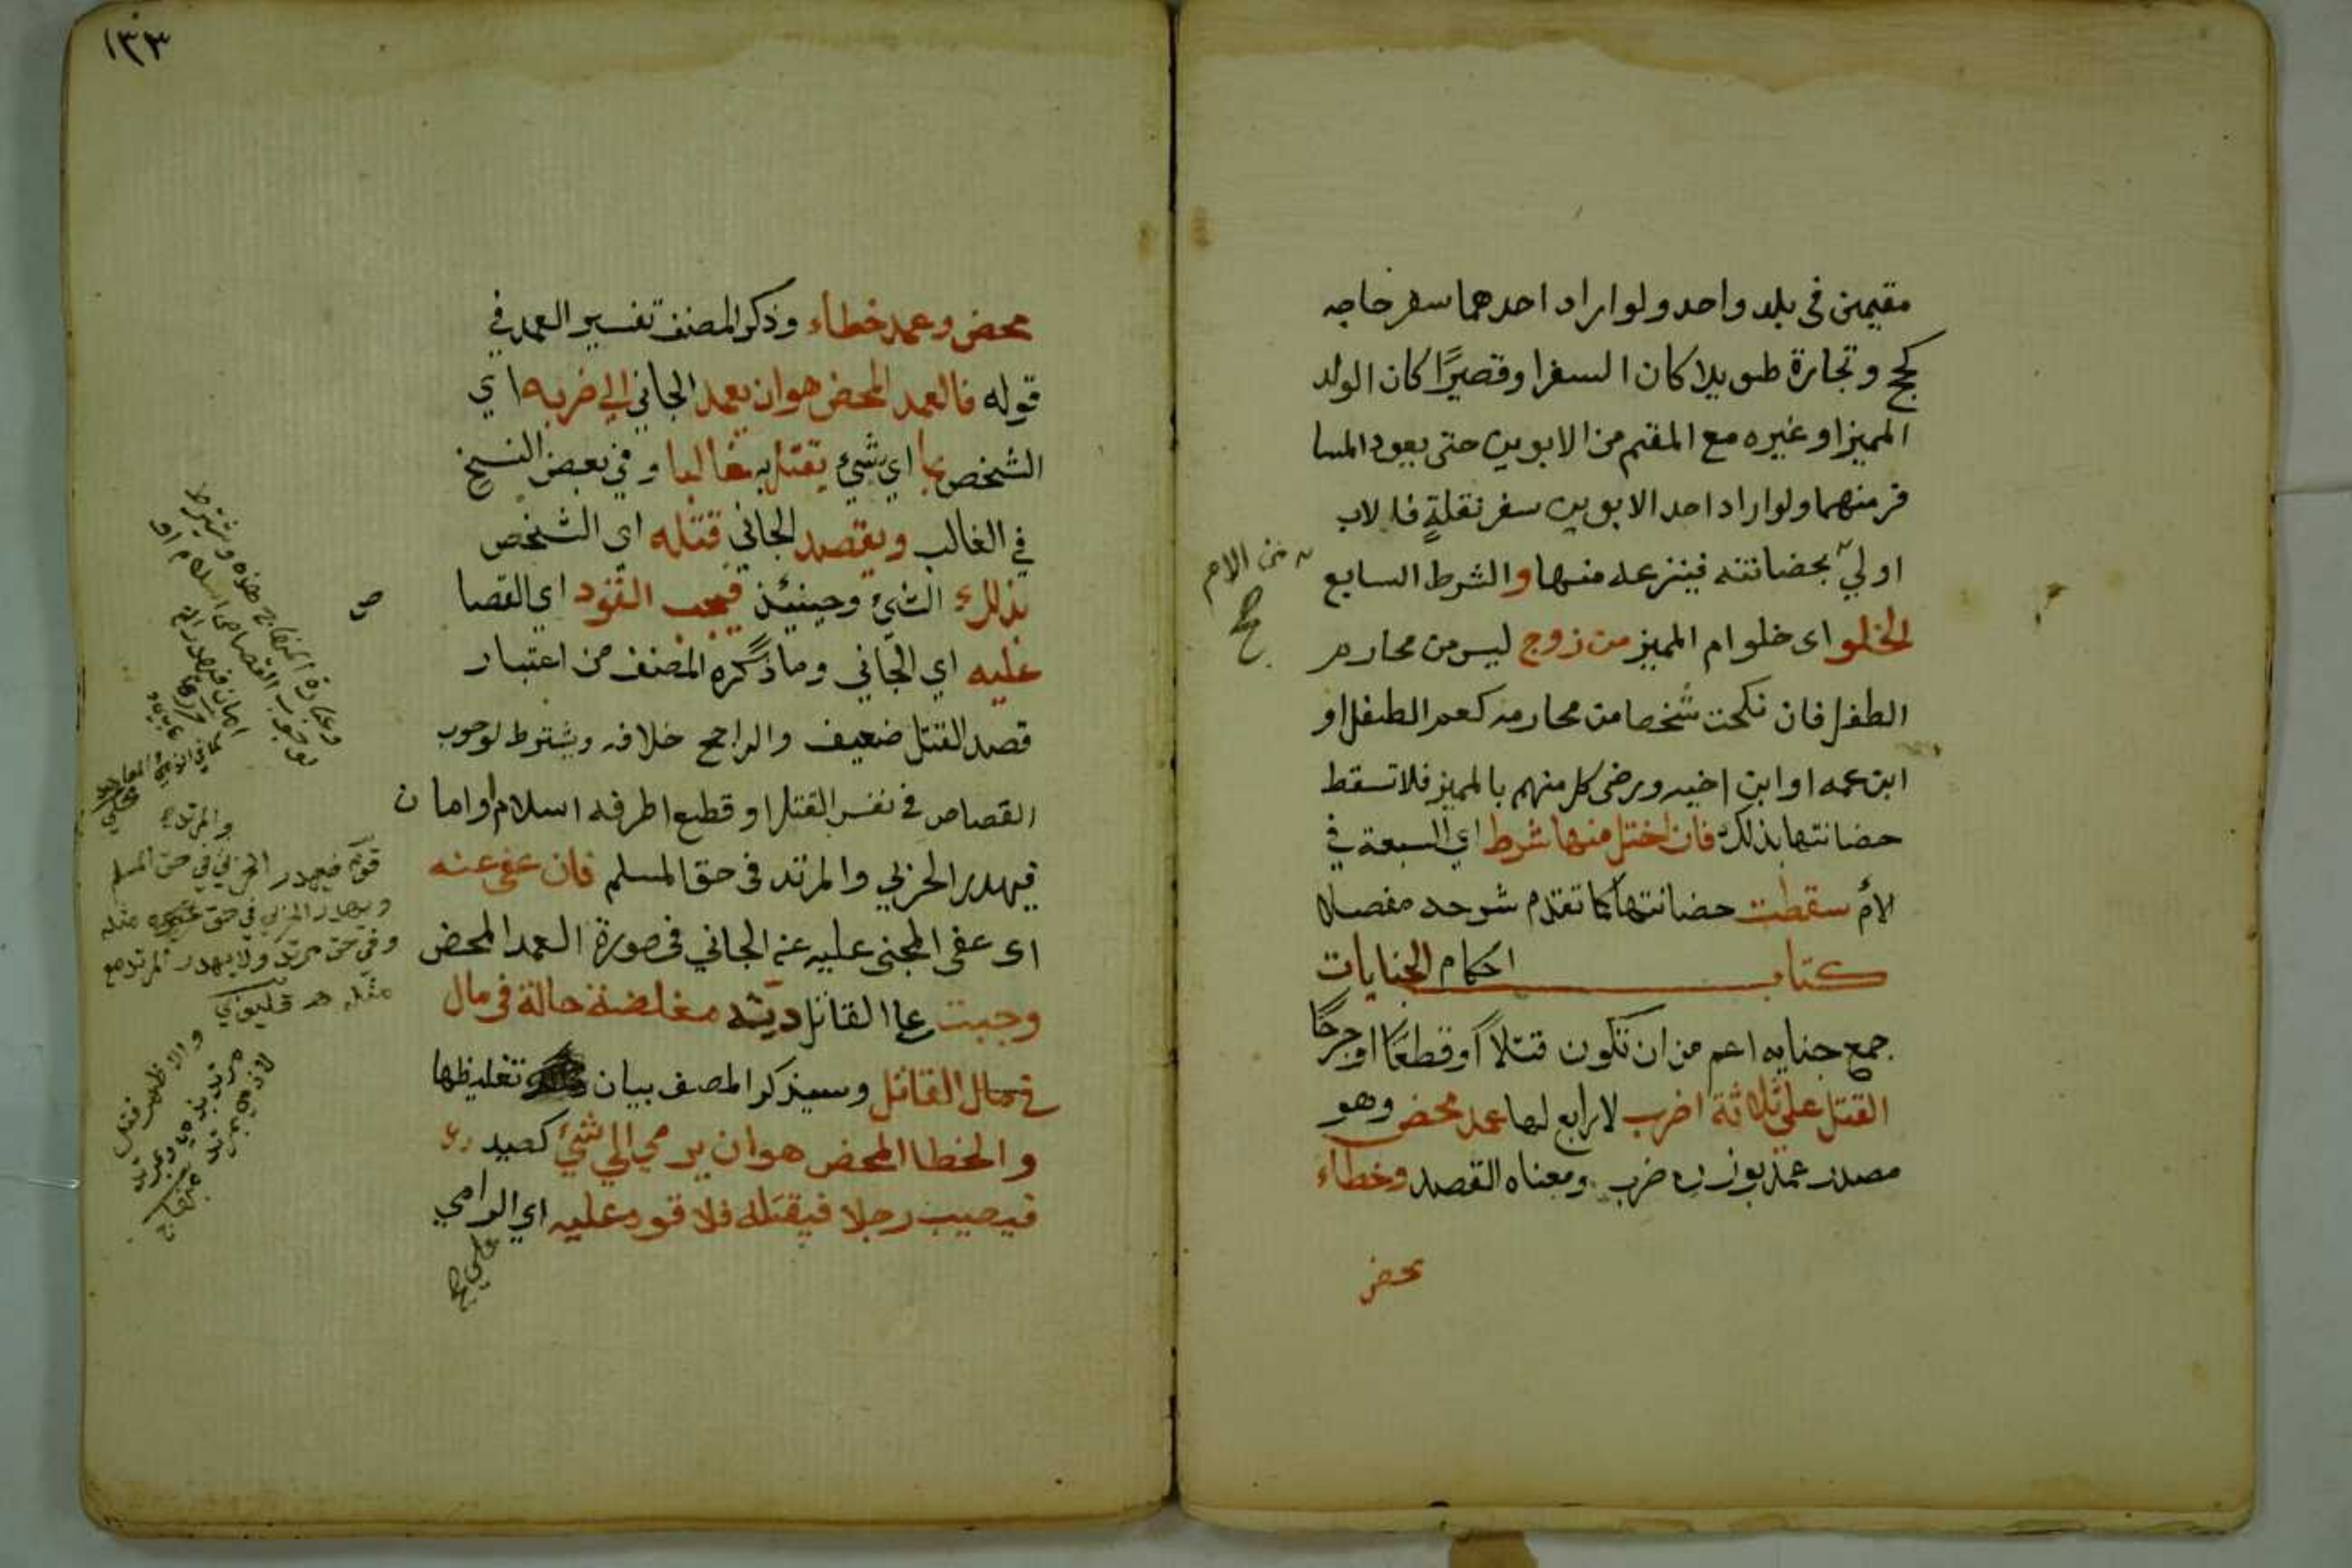 مقيمين فى بلد واحد ولو اراد احدهما سفر حاجه
كحج وتجارة طويلا كان السفر او قصيرًا كان الولد
المميز او غيره مع المقيم من الابوين حتى يعود المسا
فر منهما ولو اراد احد الابوين سفر نقلةٍ فالاب
اولي بحضانته فينزعه منها والشرط السابع
الخلو اى خلو ام المميز من زوج ليس من محارم
الطفل فان نكحت شخصا من محارمه كعم الطفل او
ابن عمه او ابن اخيه ورضى كل منهم بالمميز فلا تسقط
حضانتها بذلك فان اختل منها شرط اي السبعة في
الأم سقطت حضانتها كما تقدم شرحه مفصلا
كتاب احكام الجنايات
جمع جنايه اعم من ان تكون قتلاً او قطعًا او جرحًا
القتل على ثلاثة اضرب لا رابع لها عمد محض وهو
مصدر عمد بوزن ضرب ومعناه القصد وخطاء
محض
من الام
١٣٣
محض وعمد خطاء وذكر المصنف تفسير العمد في
قوله فالعمد المحض هو ان يعمد الجاني الي ضربه اي
الشخص بما اي بشيء يقتل به غالبا وفي بعض النسخ
في الغالب ويقصد الجاني قتله اي الشخص
بذلك الشيء وحينئذ فيجب القود اي القصا
عليه اي الجاني وما ذكره المصنف من اعتبار
قصد القتل ضعيف والراجح خلافه ويشترط لوجوب
القصاص في نفس القتل او قطع اطرفه اسلام او امان
فيهدر الحربي والمرتد في حق المسلم فان عفى عنه
اى عفى المجنى عليه عن الجاني فى صورة العمد المحض
وجبت على القاتل دية مغلضة حالة فى مال
في مال القاتل وسيذكر المصنف بيان تغليظها
والخطا المحض هو ان يرمي الي شئ كصيد
فيصيب رجلا فيقتله فلا قود عليه اي الرامي
ص
قوله فيهدر الحربي في حق المسلم
ويهدر الحربي في حق غيره مثله
وفي حق مرتد ولا يهدر المرتد مع
مثله هـ قليوبي